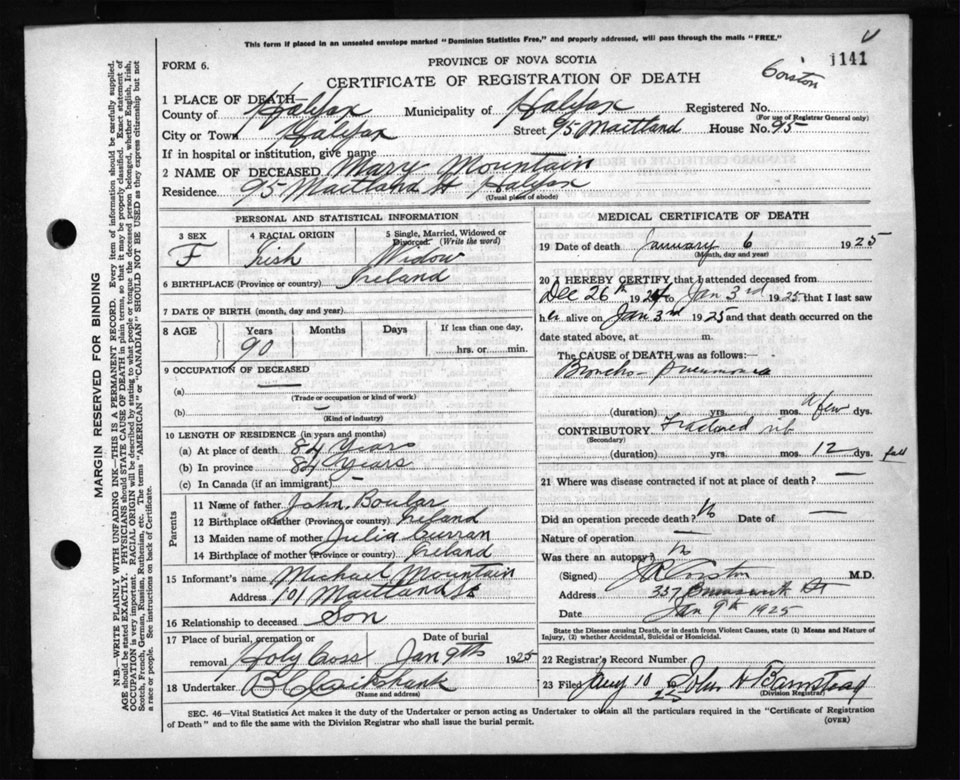 This form if placed in an unsealed envelope marked "Dominion Statistics Free," and properly addressed, will pass through the mails "FREE."
1141
FORM 6.
PROVINCE OF NOVA SCOTIA
CERTIFICATE OF REGISTRATION OF DEATH
1 PLACE OF DEATH
County of Halifax Municipality of Halifax Registered No.
(For use of Registrar General only)
City or Town Halifax Street 95 Maitland House No. 95
If in hospital or institution, give name
2 NAME OF DECEASED Mary Mountain
Residence 95 Maitland St Halifax
(Usual place of abode)
PERSONAL AND STATISTICAL INFORMATION
3 SEX 4 RACIAL ORIGIN 5 Single, Married, Widowed or
Divorced. (Write the word)
F Irish Widow
6 BIRTHPLACE (Province or country) Ireland
7 DATE OF BIRTH (month, day and year)
8 AGE Years Months Days If less than one day,
90 hrs. or min.
9 OCCUPATION OF DECEASED
(a) —
(Trade or occupation or kind of work)
(b) —
(Kind of industry)
10 LENGTH OF RESIDENCE (in years and months)
(a) At place of death 84 Years
(b) In province 84 Years
(c) In Canada (if an immigrant) —
Parents
11 Name of father John Boular
12 Birthplace of father (Province or country) Ireland
13 Maiden name of mother Julia Curran
14 Birthplace of mother (Province or country) Ireland
15 Informant's name Michael Mountain
Address 101 Maitland St
16 Relationship to deceased Son
17 Place of burial, cremation or Date of burial
removal Holy Cross Jan 9th 1925
18 Undertaker B Cruikshank
(Name and address)
MEDICAL CERTIFICATE OF DEATH
19 Date of death January 6 1925
(Month, day and year)
20 I HEREBY CERTIFY that I attended deceased from
Dec 26th 1924 to Jan 3rd 1925 that I last saw
her alive on Jan 3rd 1925 and that death occurred on the
date stated above, at m.
The CAUSE of DEATH was as follows:—
Broncho-pneumonia
(duration) yrs. mos. a few dys.
CONTRIBUTORY Fractured rib
(Secondary)
(duration) yrs. mos. 12 dys. fall
21 Where was disease contracted if not at place of death? —
Did an operation precede death? No Date of —
Nature of operation —
Was there an autopsy? No
(Signed) M.D.
Address 357 Brunswick St
Date Jan 9th 1925
State the Disease causing Death, or in death from Violent Causes, state (1) Means and Nature of
Injury, (2) whether Accidental, Suicidal or Homicidal.
22 Registrar's Record Number
23 Filed Jany 10 1925 John H Barnstead
(Division Registrar)
SEC. 46—Vital Statistics Act makes it the duty of the Undertaker or person acting as Undertaker to obtain all the particulars required in the "Certificate of Registration
of Death" and to file the same with the Division Registrar who shall issue the burial permit.
(OVER)
MARGIN RESERVED FOR BINDING
N.B.—WRITE PLAINLY WITH UNFADING INK—THIS IS A PERMANENT RECORD. Every item of information should be carefully supplied.
AGE should be stated EXACTLY. PHYSICIANS should STATE CAUSE OF DEATH in plain terms, so that it may be properly classified. Exact statement of
OCCUPATION is very important. RACIAL ORIGIN will be described by stating to what people or tongue the deceased person belonged, whether English, Irish,
Scotch, French, German, Russian, Ruthenian, etc. The terms "AMERICAN" or "CANADIAN" SHOULD NOT BE USED as they express citizenship but not
a race or people. See instructions on back of Certificate.